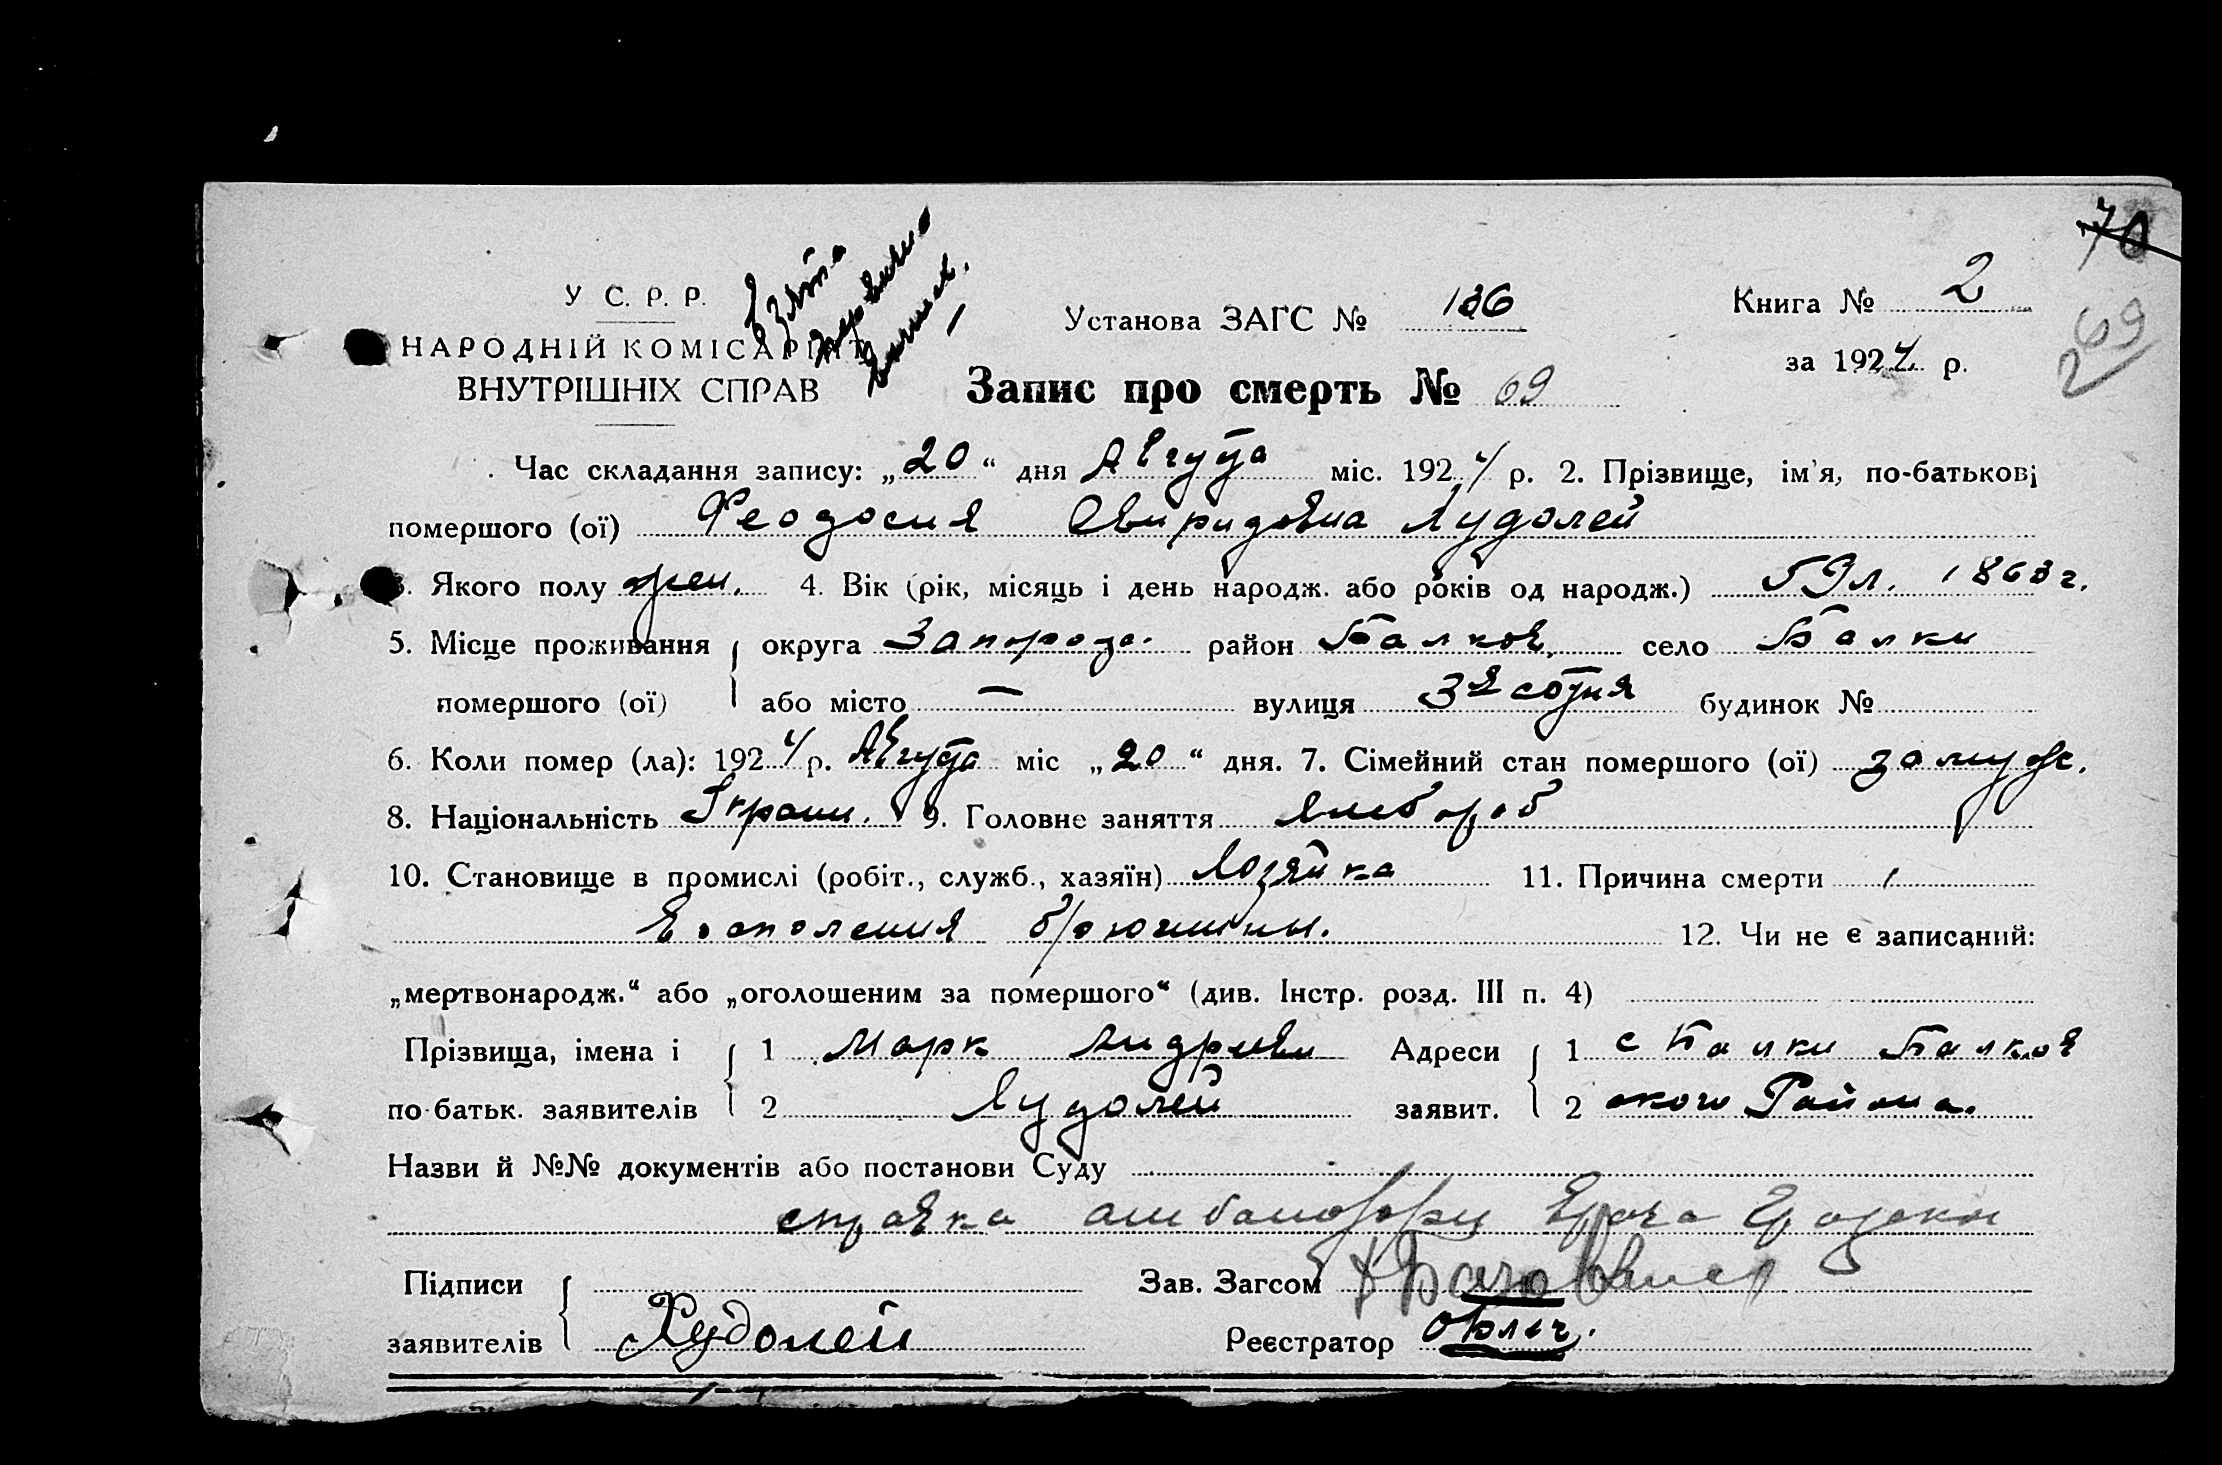 70
У С. Р. Р.
НАРОДНІЙ КОМІСАРІЯТ
ВНУТРІШНІХ СПРАВ
Установа ЗАГС № 186
Книга № 2
за 1924 р.
69
2
Запис про смерть № 69
Час складання запису: „20“ дня Августа міс. 1924 р. 2. Прізвище, ім'я, по-батькові
помершого (ої) Феодосия Свиридовна Худолей
3. Якого полу жен. 4. Вік (рік, місяць і день народж. або років од народж.) 59 л. 1863 г.
5. Місце проживання округа Запорож. район Балков. село Балки
помершого (ої) або місто — вулиця 3я сотня будинок №
6. Коли помер (ла): 1924 р. Августа міс „20“ дня. 7. Сімейний стан помершого (ої) замуж.
8. Національність Украин. 9. Головне заняття хлебороб
10. Становище в промислі (робіт., служб., хазяїн) Хозяйка 11. Причина смерти
Воспаления брюшины. 12. Чи не є записаний:
„мертвонародж.“ або „оголошеним за помершого“ (див. Інстр. розд. III п. 4)
Прізвища, імена і 1 Марк Андреевич Адреси 1 с Балки Балков
по-батьк. заявителів 2 Худолей заявит. 2 ского Района.
Назви й №№ документів або постанови Суду
справка амбулатории Врача
Підписи Зав. Загсом
заявителів Худолей Реєстратор